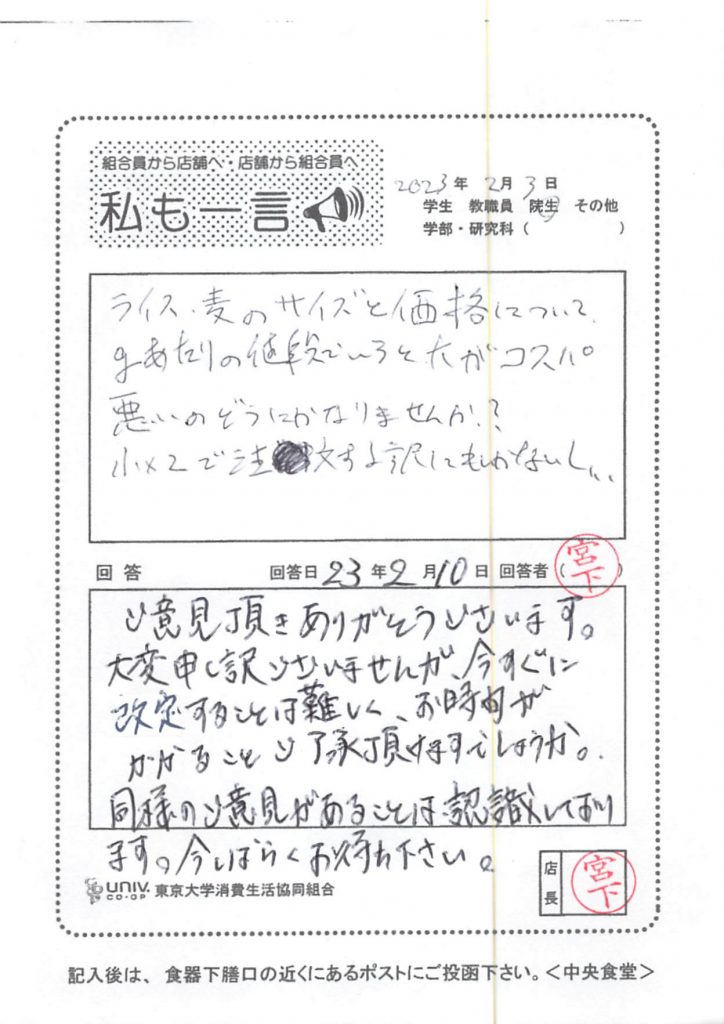 組合員から店舗へ・店舗から組合員へ
私も一言
2023年 2月 3日
学生 教職員 院生 その他
学部・研究科 ( )
ライス・麦のサイズと価格について、
gあたりの値段でいうと大がコスパ
悪いのどうにかなりませんか?
小×2で注文する訳にもいかないし、、、
回答 回答日 23年2月10日 回答者 (宮下)
ご意見頂きありがとうございます。
大変申し訳ございませんが、今すぐに
改定することは難しく、お時間が
かかることご了承頂けますでしょうか。
同様のご意見があることは認識しており
ます。今しばらくお待ち下さい。
UNIV. CO-OP 東京大学消費生活協同組合
店長 宮下
記入後は、食器下膳口の近くにあるポストにご投函下さい。<中央食堂>